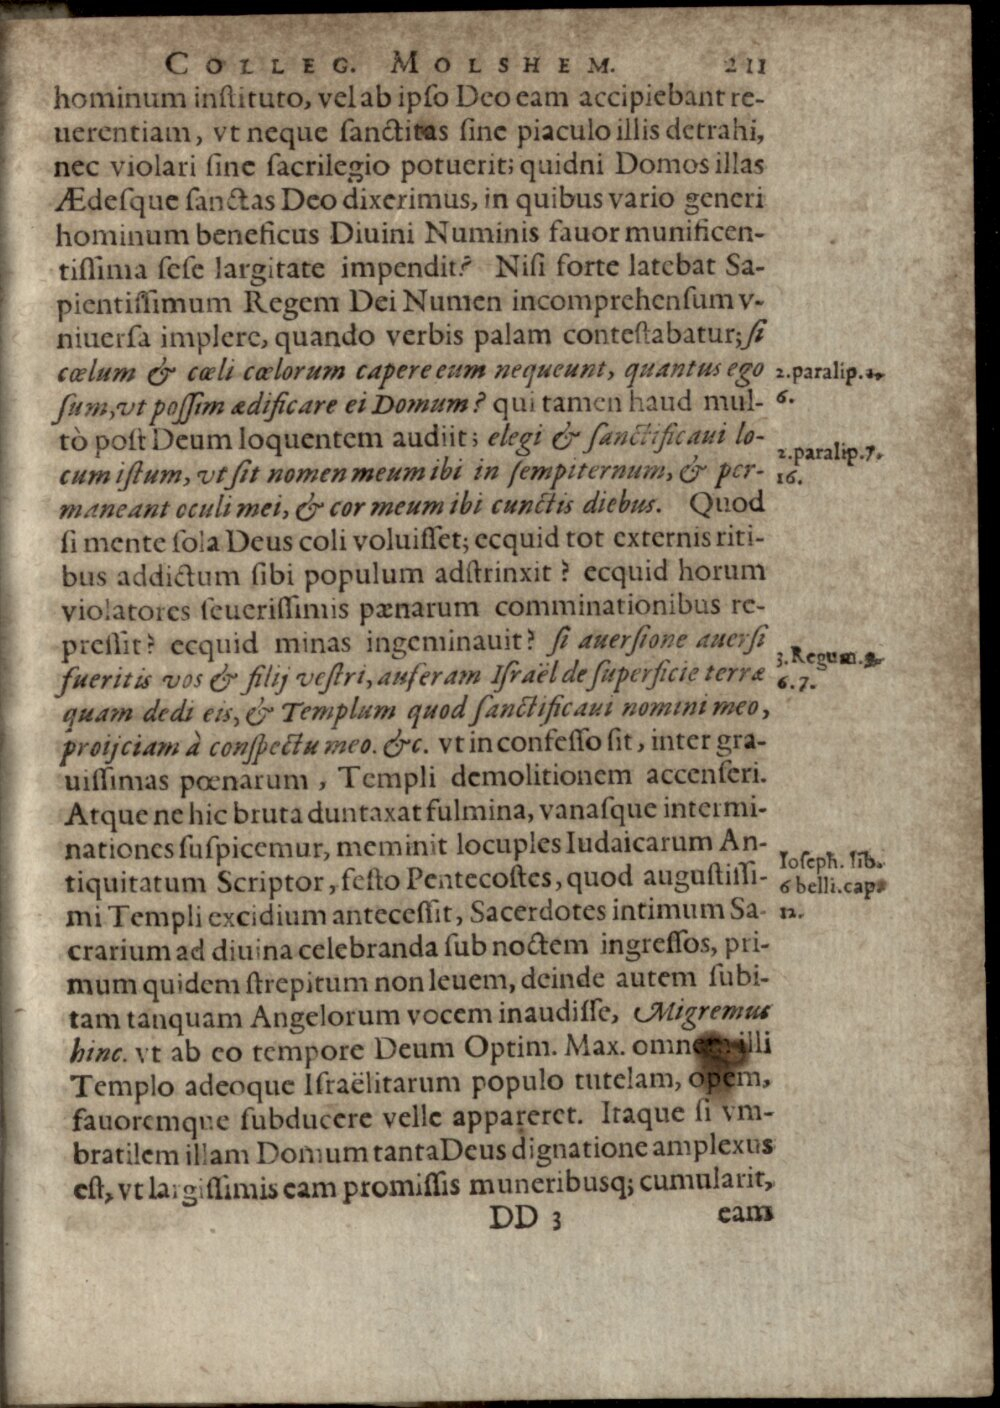 COLLEG. MOLSHEM. 211
hominum inſtituto, vel ab ipſo Deo eam accipiebant re-
uerentiam, vt neque ſanctitas ſine piaculo illis detrahi,
nec violari ſine ſacrilegio potuerit; quidni Domos illas
Ædeſque ſanctas Deo dixerimus, in quibus vario generi
hominum beneficus Diuini Numinis fauor munificen-
tiſſima ſeſe largitate impendit? Niſi forte latebat Sa-
pientiſſimum Regem Dei Numen incomprehenſum v-
niuerſa implere, quando verbis palam conteſtabatur; ſi
cœlum & cœli cœlorum capere eum nequeunt, quantus ego
ſum, vt poſſim ædificare ei Domum? qui tamen haud mul-
tò poſt Deum loquentem audiit; elegi & ſanctificaui lo-
cum iſtum, vt ſit nomen meum ibi in ſempiternum, & per-
maneant oculi mei, & cor meum ibi cunctis diebus. Quod
ſi mente ſola Deus coli voluiſſet; ecquid tot externis riti-
bus addictum ſibi populum adſtrinxit? ecquid horum
violatores ſeueriſſimis pænarum comminationibus re-
preſſit? ecquid minas ingeminauit? ſi auerſione auerſi
fueritis vos & filij veſtri, auferam Iſraël de ſuperficie terræ
quam dedi eis, & Templum quod ſanctificaui nomini meo,
proijciam à conſpectu meo. &c. vt in confeſſo ſit, inter gra-
uiſſimas pœnarum, Templi demolitionem accenſeri.
Atque ne hic bruta duntaxat fulmina, vanaſque intermi-
nationes ſuſpicemur, meminit locuples Iudaicarum An-
tiquitatum Scriptor, feſto Pentecoſtes, quod auguſtiſſi-
mi Templi excidium anteceſſit, Sacerdotes intimum Sa-
crarium ad diuina celebranda ſub noctem ingreſſos, pri-
mum quidem ſtrepitum non leuem, deinde autem ſubi-
tam tanquam Angelorum vocem inaudiſſe, Migremus
hinc. vt ab eo tempore Deum Optim. Max. omnem illi
Templo adeoque Iſraëlitarum populo tutelam, opem,
fauoremque ſubducere velle appareret. Itaque ſi vm-
bratilem illam Domum tanta Deus dignatione amplexus
eſt, vt largiſſimis eam promiſſis muneribusq; cumularit,
DD 3 eam
2. paralip. 2.
6.
2. paralip. 7.
16.
3. Regum. 9.
6. 7.
Ioſeph. lib.
6 belli. cap.
12.